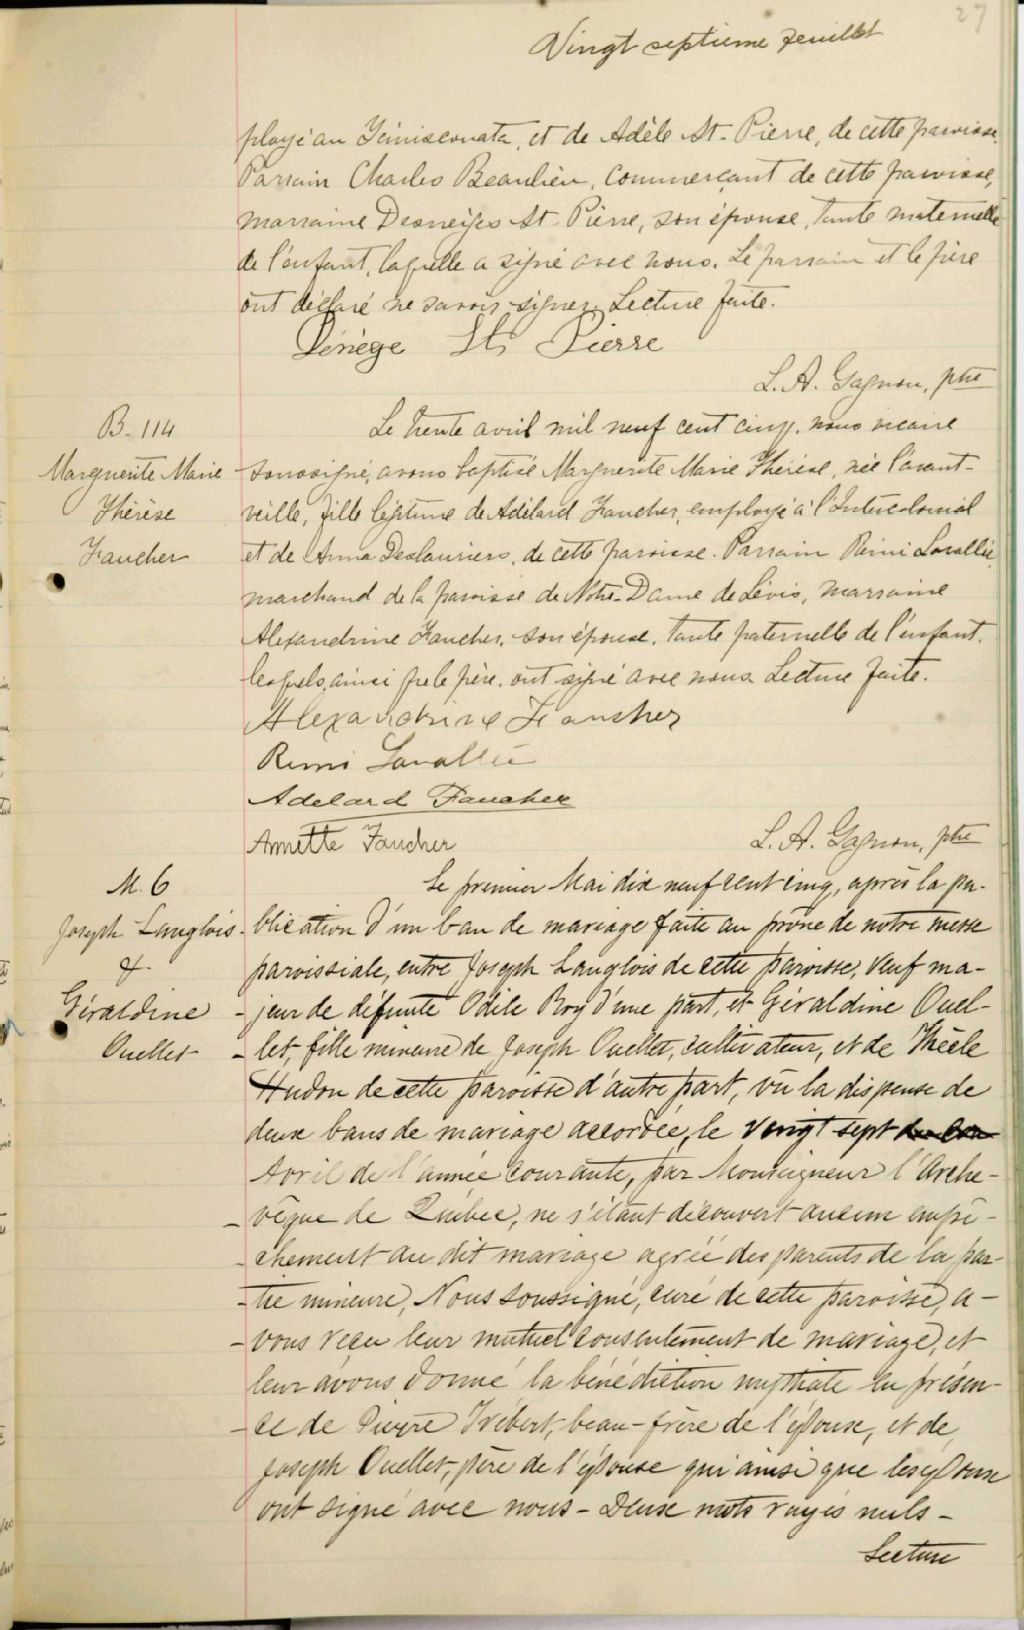 27
Vingt septième feuillet
ployé au Témiscouata, et de Adèle St-Pierre, de cette paroisse.
Parrain Charles Beaulieu, commerçant de cette paroisse,
marraine Desneiges St-Pierre, son épouse, tante maternelle
de l'enfant, laquelle a signé avec nous. Le parrain et le père
ont déclaré ne savoir signer. Lecture faite.
St Pierre
L. A. Gagnon, ptre
B. 114
Marguerite Marie
Thérèse
Faucher
Le trente avril mil neuf cent cinq, nous vicaire
soussigné, avons baptisé Marguerite Marie Thérèse, née l'avant-
veille, fille légitime de Adélard Faucher, employé à l'Intercolonial
et de Anna Deslauriers, de cette paroisse. Parrain Rémi Lavallée,
marchand de la paroisse de Notre-Dame de Lévis, marraine
Alexandrine Faucher, son épouse, tante paternelle de l'enfant,
lesquels, ainsi que le père, ont signé avec nous. Lecture faite.
Alexandrine Faucher
Remi Lavallée
Adelard Faucher
Annette Faucher
L. A. Gagnon, ptre
M. 6
Joseph Langlois
&
Géraldine
Ouellet
Le premier Mai dix neuf cent cinq, après la pu-
blication d'un ban de mariage faite au prône de notre messe
paroissiale, entre Joseph Langlois de cette paroisse, veuf ma-
-jeur de défunte Odile Roy d'une part, et Géraldine Ouel-
-let, fille mineure de Joseph Ouellet, cultivateur, et de Thècle
Hudon de cette paroisse d'autre part, vu la dispense de
deux bans de mariage accordée, le vingt sept
Avril de l'année courante, par Monseigneur l'Arche-
-vêque de Québec, ne s'étant découvert aucun empê-
-chement au dit mariage agréé des parents de la par-
-tie mineure, Nous soussigné, curé de cette paroisse, a-
-vons reçu leur mutuel consentement de mariage, et
leur avons donné la bénédiction nuptiale en présen-
-ce de Pierre Hébert, beau-frère de l'épouse, et de
Joseph Ouellet, père de l'épouse qui ainsi que les époux
ont signé avec nous - Deux mots rayés nuls -
Lecture